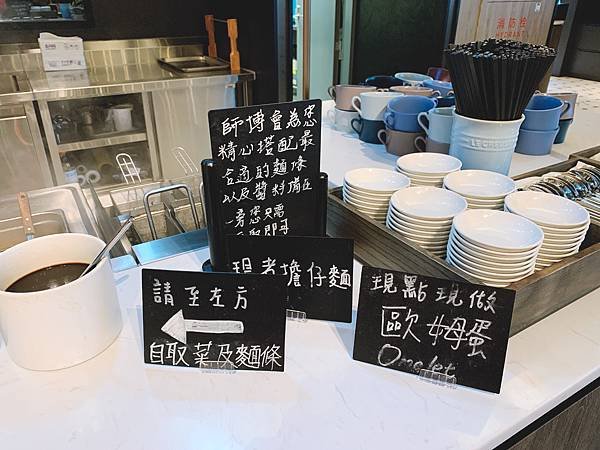 消防栓
HYDRANT
師博會為您
精心搭配最
合適的麵條
以及醬料備在
旁您只需
現煮擔仔麵
請至左方
自取菜及麵條
現點現做
歐姆蛋
Omelet
LE CREUSET